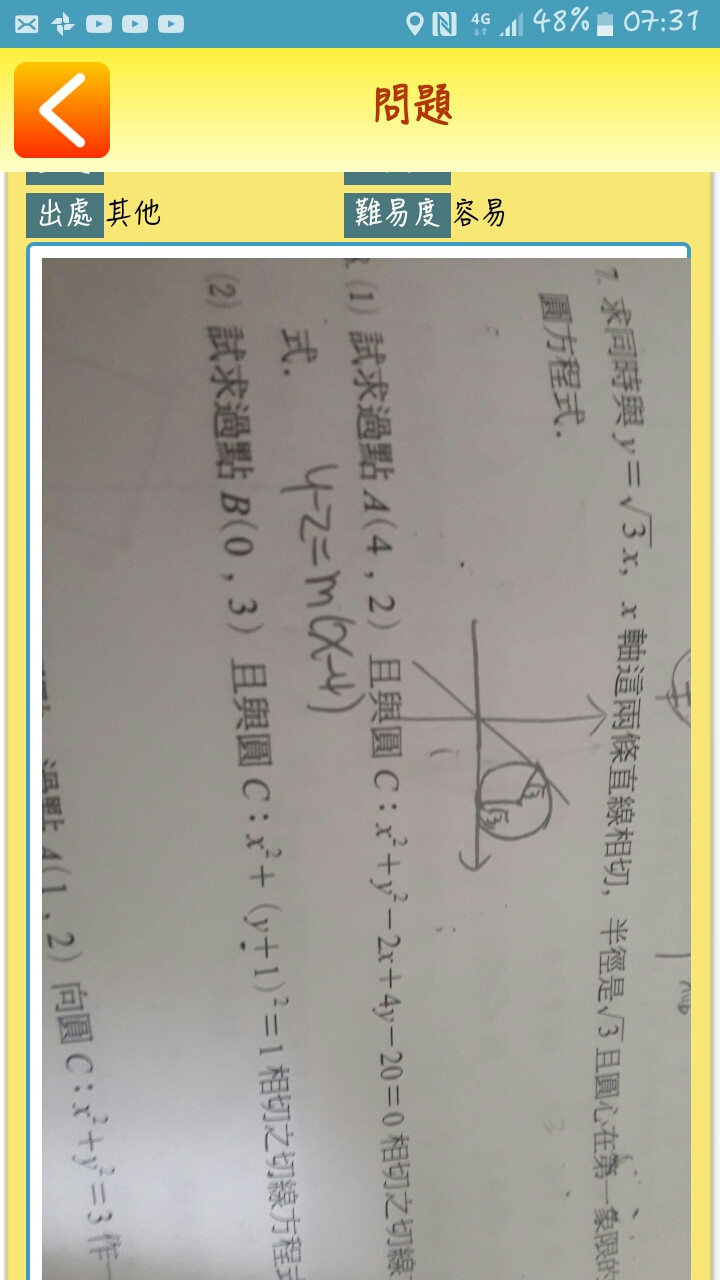 48% 07:31
4G
問題
出處 其他 難易度 容易
7. 求同時與 y=√3x, x 軸這兩條直線相切, 半徑是√3且圓心在第一象限的
圓方程式.
√3
√3
(1) 試求過點 A(4, 2) 且與圓 C:x²+y²−2x+4y−20=0 相切之切線
式.
y-2=m(x-4)
(2) 試求過點 B(0, 3) 且與圓 C:x²+(y+1)²=1 相切之切線方程式
過點 A(1, 2) 向圓 C:x²+y²=3 作一